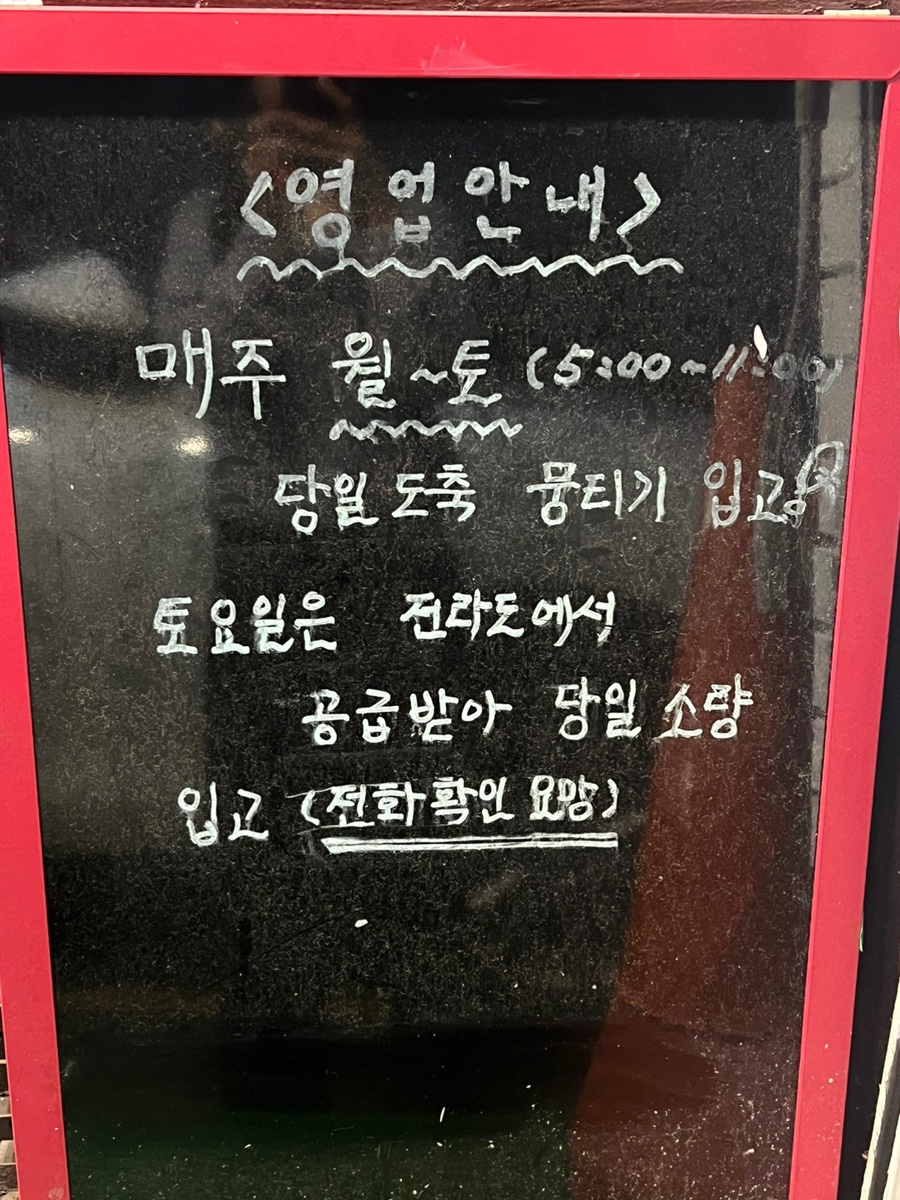 <영업안내>
매주 월~토 (5:00~11:00)
당일 도축 뭉티기 입고
토요일은 전라도에서
공급받아 당일 소량
입고 (전화확인 요망)